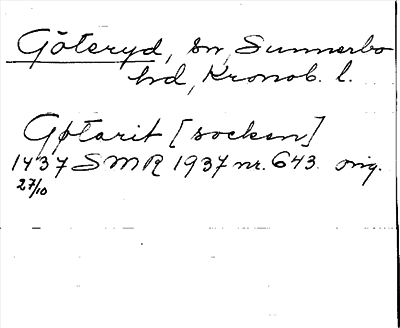 Göteryd, sn, Sunnerbo
hd, Kronob. l.
Gøtarit [socken]
1437 SMR 1937 nr. 643. orig.
27/10